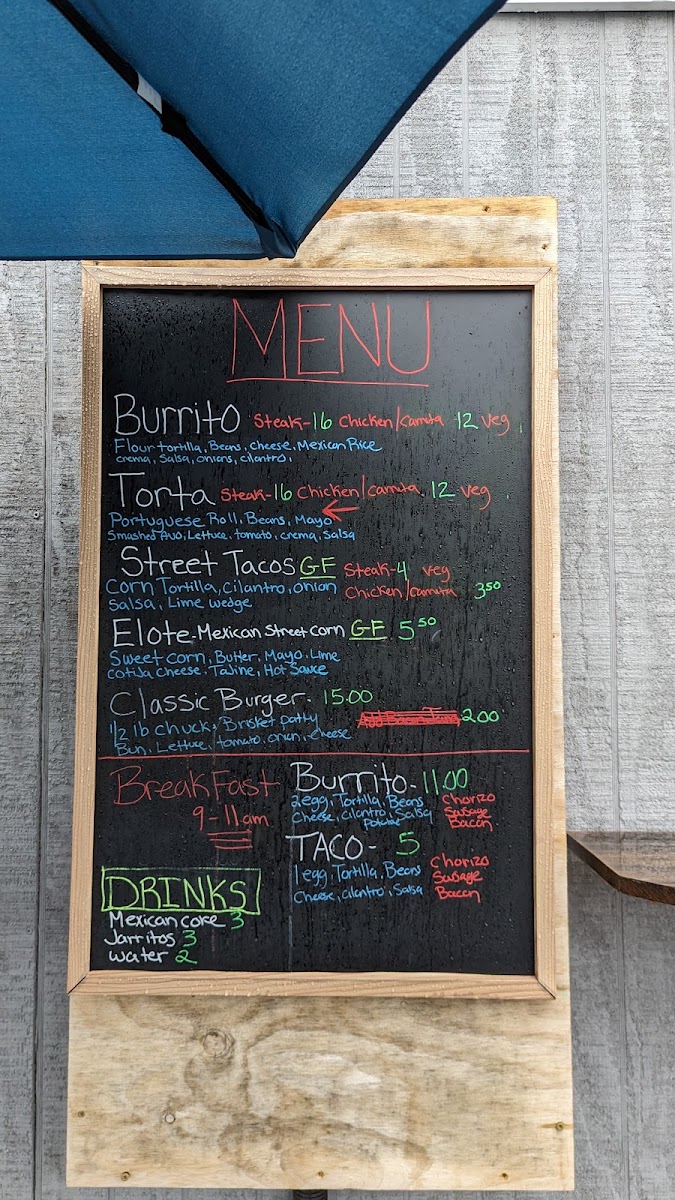 MENU
Burrito Steak-16 Chicken/Carnita 12 Veg
Flour tortilla, Beans, Cheese, Mexican Rice
crema, Salsa, onions, cilantro,
Torta Steak-16 Chicken/Carnita 12 Veg
Portuguese Roll, Beans, Mayo
Smashed Avo, Lettuce, tomato, crema, Salsa
Street Tacos GF Steak-4 Veg
Corn Tortilla, cilantro, onion Chicken/Carnita 3.50
Salsa, Lime wedge
Elote-Mexican Street corn GF 5.50
Sweet corn, Butter, Mayo, Lime
Cotija Cheese, Tajine, Hot Sauce
Classic Burger- 15.00
1/2 lb chuck, Brisket patty 2.00
Bun, Lettuce, tomato, onion, cheese
BreakFast
9-11am
Burrito- 11.00
2 egg, Tortilla, Beans Chorizo
Cheese, cilantro, Salsa Sausage
Potatoe Bacon
TACO- 5
1 egg, Tortilla, Beans Chorizo
Cheese, cilantro, Salsa Sausage
Bacon
DRINKS
Mexican coke 3
Jarritos 3
water 2